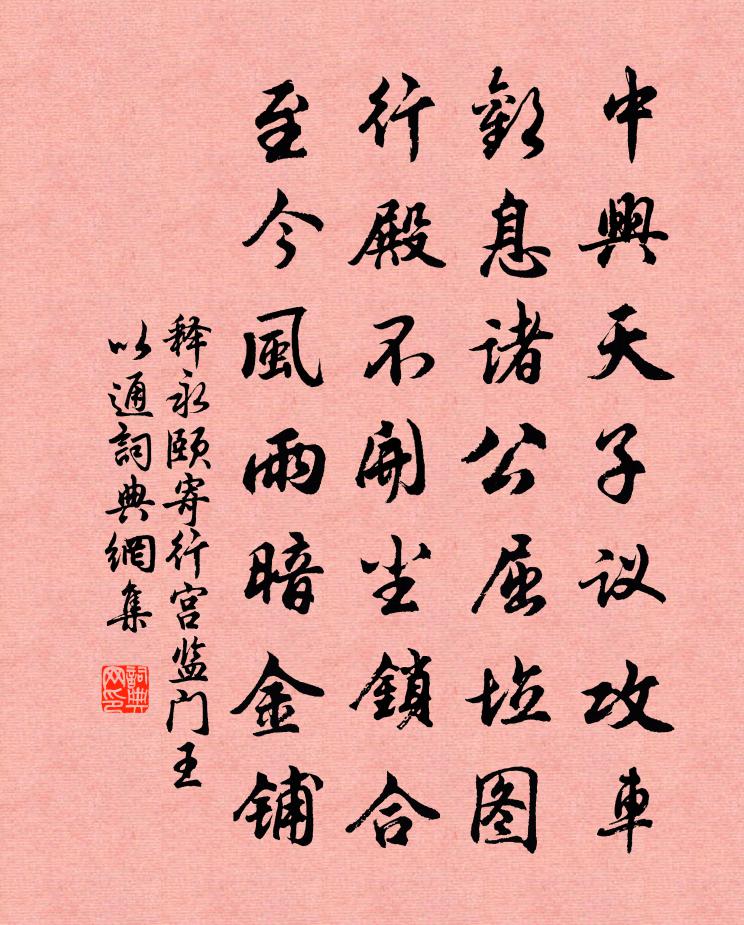 中興天子议攻車
歎息諸公屈图
行殿不開尘鎖合
至今風雨暗金铺
释永頤寄行宫监门王
以通詞典網集
詞典网印